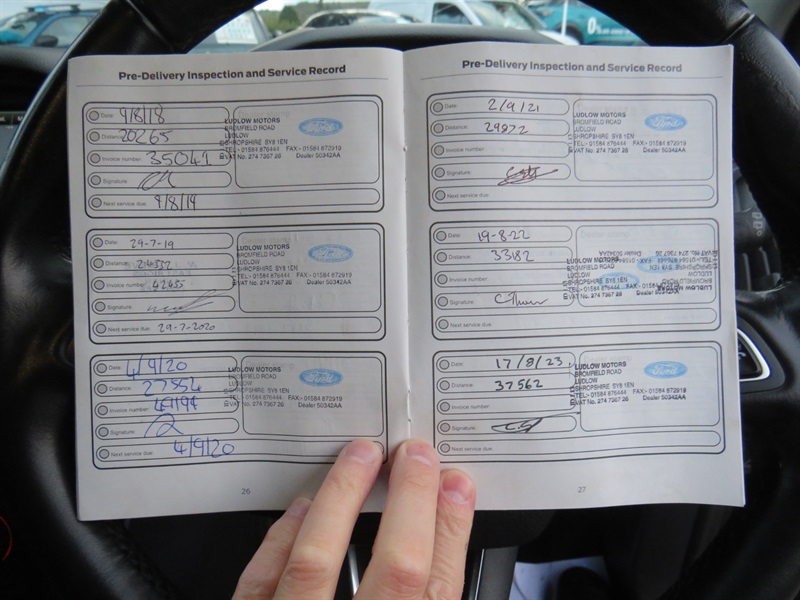 Pre-Delivery Inspection and Service Record
Date: 9/8/18
Distance: 20265
Invoice number: 35041
Signature:
Next service due: 9/8/19
LUDLOW MOTORS
BROMFIELD ROAD
LUDLOW
SHROPSHIRE SY8 1EN
TEL:- 01584 876444 FAX:- 01584 872919
VAT No. 274 7367 26 Dealer 50342AA
Ford
Date: 29-7-19
Distance: 24552
Invoice number: 42455
Signature:
Next service due: 29-7-2020
LUDLOW MOTORS
BROMFIELD ROAD
LUDLOW
SHROPSHIRE SY8 1EN
TEL:- 01584 876444 FAX:- 01584 872919
VAT No. 274 7367 26 Dealer 50342AA
Ford
Date: 4/9/20
Distance: 27854
Invoice number:
Signature:
Next service due: 4/9/20
LUDLOW MOTORS
BROMFIELD ROAD
LUDLOW
SHROPSHIRE SY8 1EN
TEL:- 01584 876444 FAX:- 01584 872919
VAT No. 274 7367 26 Dealer 50342AA
Ford
26
Pre-Delivery Inspection and Service Record
Date: 2/9/21
Distance: 29872
Invoice number:
Signature:
Next service due:
LUDLOW MOTORS
BROMFIELD ROAD
LUDLOW
SHROPSHIRE SY8 1EN
TEL:- 01584 876444 FAX:- 01584 872919
VAT No. 274 7367 26 Dealer 50342AA
Ford
Date: 19-8-22
Distance: 33182
Invoice number:
Signature:
Next service due:
LUDLOW MOTORS
BROMFIELD ROAD
LUDLOW
SHROPSHIRE SY8 1EN
Date: 17/8/23
Distance: 37562
Invoice number:
Signature:
Next service due:
LUDLOW MOTORS
BROMFIELD ROAD
LUDLOW
SHROPSHIRE SY8 1EN
TEL:- 01584 876444 FAX:- 01584 872919
VAT No. 274 7367 26 Dealer 50342AA
Ford
27
0%